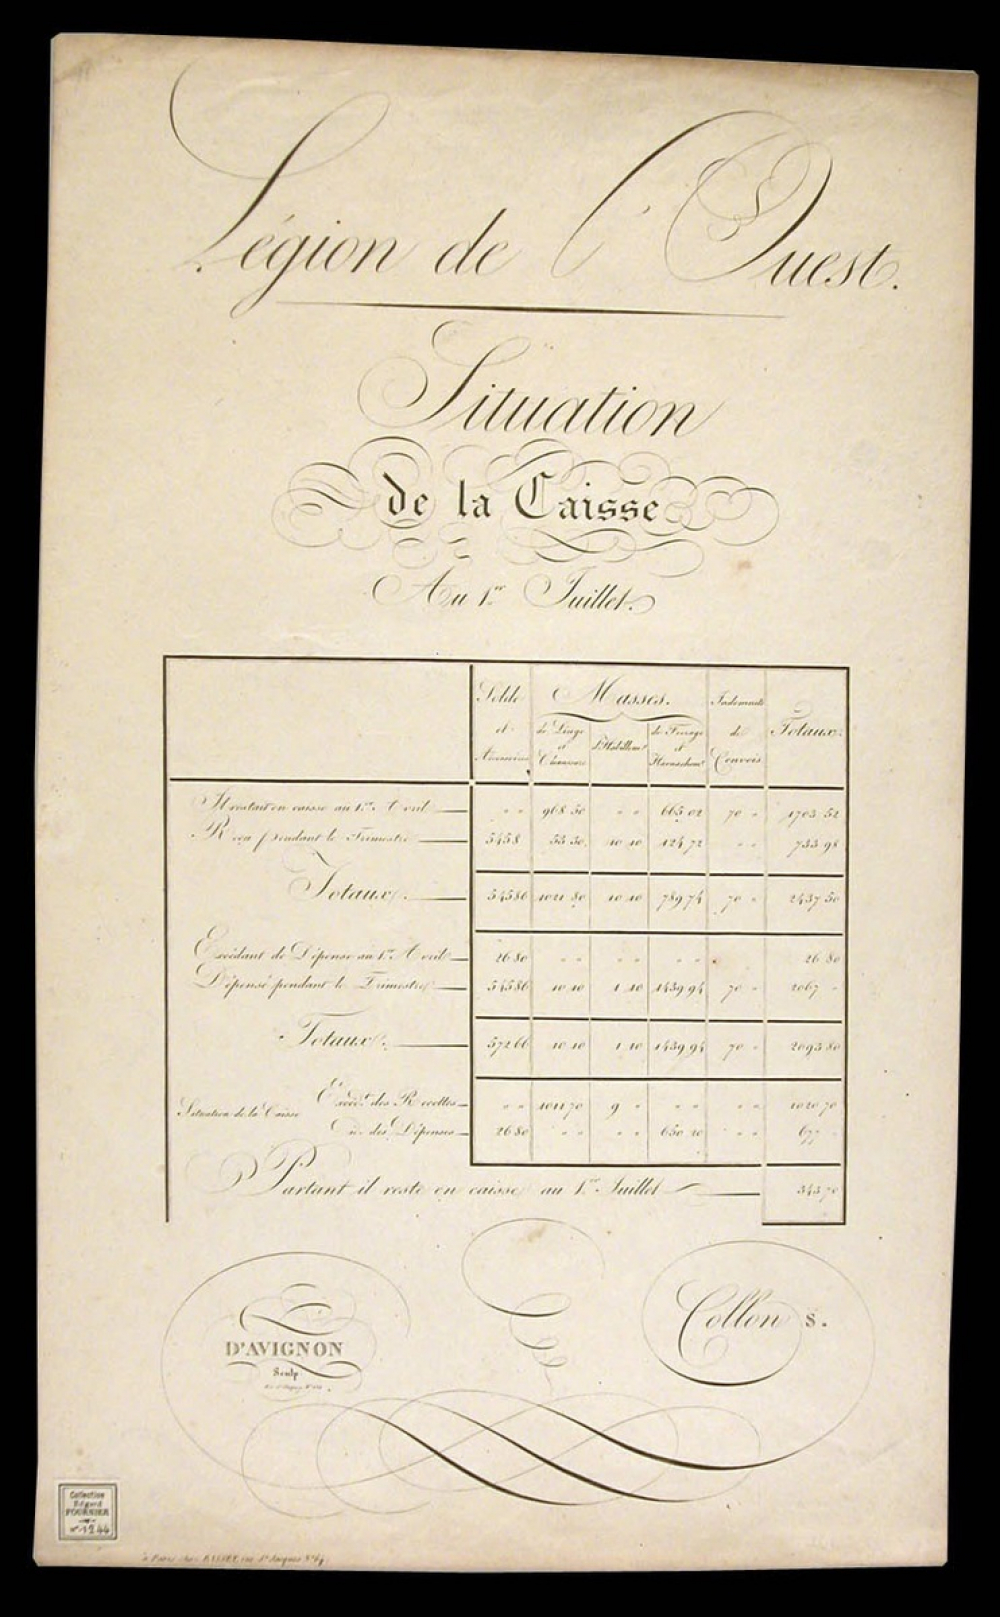 Légion de l'Ouest.
Situation
de la Caisse
Au 1.er Juillet.
Solde et
Masses.
de Linge et Chaussure
d'Habillem.t
de Ferrage et Harnachem.t
Indemnité de Convois
Totaux.
Il restait en caisse au 1.er Avril " " 968 50 " " 665 02 70 " 1703 52
Reçu pendant le Trimestre 5458 53 30 10 10 124 72 " " 733 98
Totaux. 54586 1021 80 10 10 789 74 70 " 2437 50
Excédant de Dépense au 1.er Avril 26 80 " " " " " " 26 80
Dépensé pendant le Trimestre 54586 10 10 1 10 1439 94 70 " 2067 "
Totaux. 57266 10 10 1 10 1439 94 70 " 2093 80
Situation de la Caisse
Excéd.t des Recettes " " 1011 70 9 " " " " " 1020 70
des Dépenses 26 80 " " " " 650 20 " " 677 "
Partant il reste en caisse au 1.er Juillet 343 70
D'AVIGNON
Sculp.
Collon s.
Collection
Edgard
FOURNIER
n° 1244
à Paris chez BASSET, rue S.t Jacques N° 64